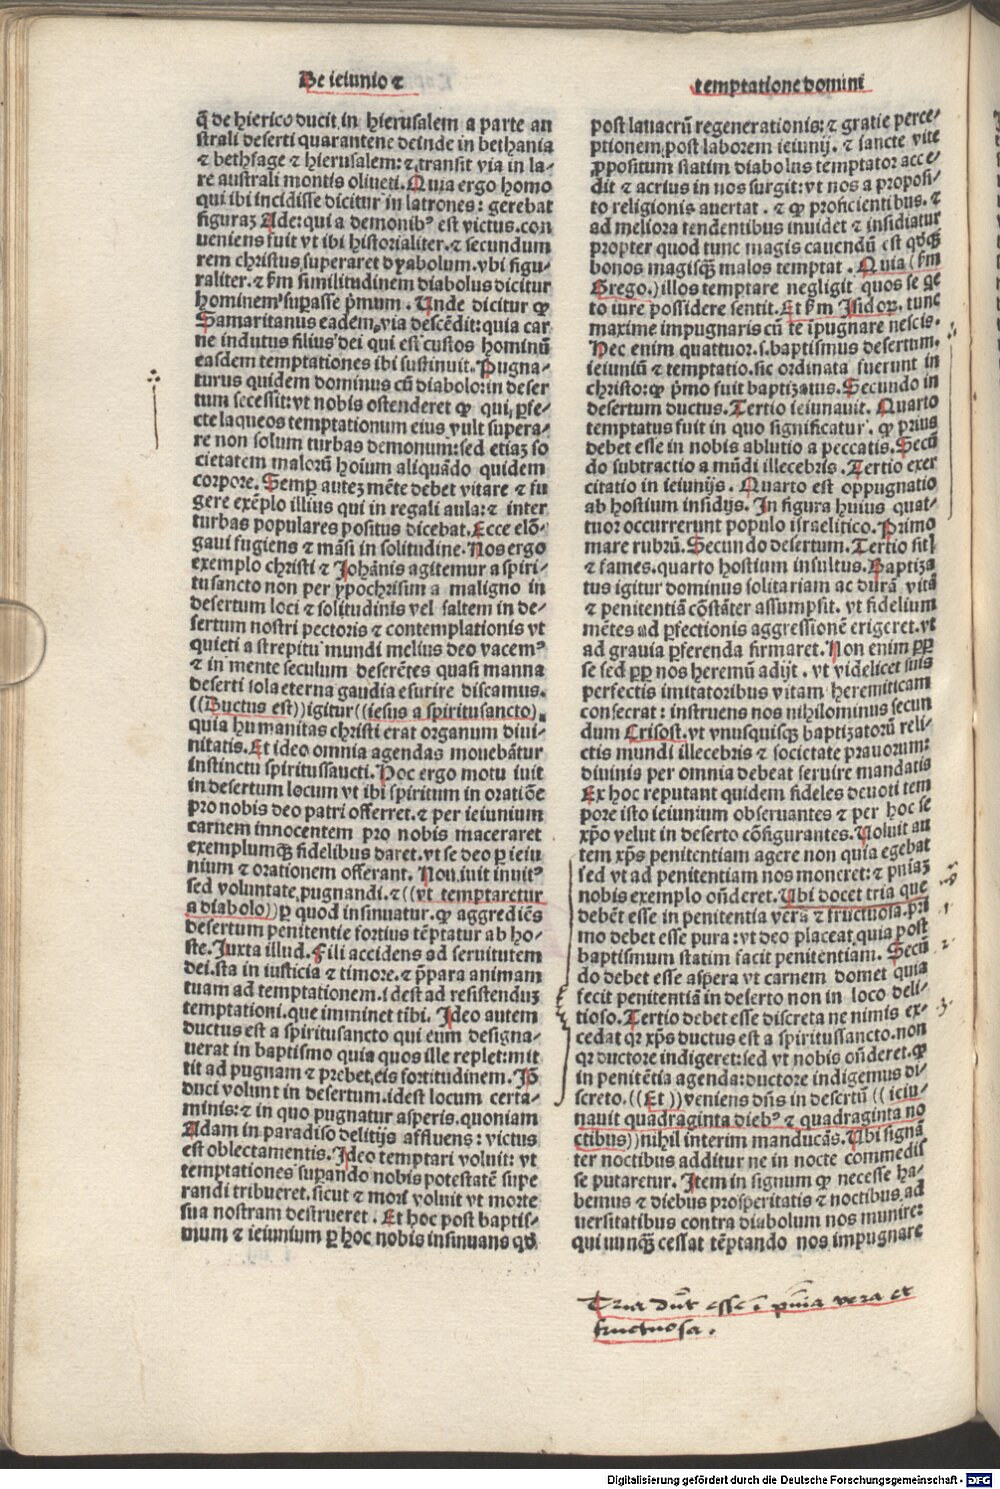 De ieiunio ⁊
temptatione domini
q̄ de hierico ducit in hierusalem a parte au
strali deserti quarantene deinde in bethania
⁊ bethfage ⁊ hierusalem: ⁊ transit via in la-
re australi montis oliueti. Quia ergo homo
qui ibi incidisse dicitur in latrones: gerebat
figuraȝ Ade: qui a demonibꝰ est victus. con
ueniens fuit vt ibi historialiter. ⁊ secundum
rem christus superaret dyabolum. vbi figu-
raliter. ⁊ ẜm similitudinem diabolus dicitur
hominem suꝑasse pͥmum. Unde dicitur ꝙ
Samaritanus eadem via descēdit: quia car
ne indutus filius dei qui est custos hominū
easdem temptationes ibi sustinuit. Pugna-
turus quidem dominus cū diabolo: in deser
tum secessit: vt nobis ostenderet ꝙ qui ꝑfe-
cte laqueos temptationum eius vult supera-
re non solum turbas demonum: sed etiaȝ so
cietatem malorū hoium aliquādo quidem
corpore. Semꝑ auteȝ mēte debet vitare ⁊ fu
gere exēplo illius qui in regali aula: ⁊ inter
turbas populares positus dicebat. Ecce elō-
gaui fugiens ⁊ māsi in solitudine. Nos ergo
exemplo christi ⁊ Johānis agitemur a spiri-
tusancto non per ypochrisim a maligno in
desertum loci ⁊ solitudinis vel saltem in de-
sertum nostri pectoris ⁊ contemplationis vt
quieti a strepitu mundi melius deo vacemꝰ
⁊ in mente seculum deserētes quasi manna
deserti sola eterna gaudia esurire discamus.
((Ductus est)) igitur ((iesus a spiritusancto)
quia humanitas christi erat organum diui-
nitatis. Et ideo omnia agendas mouebātur
instinctu spiritussancti. Hoc ergo motu iuit
in desertum locum vt ibi spiritum in oratiōe
pro nobis deo patri offerret. ⁊ per ieiunium
carnem innocentem pro nobis maceraret
exemplumqȝ fidelibus daret. vt se deo ꝑ ieiu
nium ⁊ orationem offerant. Non iuit inuitꝰ
sed voluntate pugnandi. ⁊ ((vt temptaretur
a diabolo)) ꝑ quod insinuatur. ꝙ aggrediēs
desertum penitentie fortius tēptatur ab ho-
ste. Juxta illud. Fili accidens ad seruitutem
dei. sta in iusticia ⁊ timore. ⁊ p̄para animam
tuam ad temptationem. i dest ad resistenduȝ
temptationi. que imminet tibi. Ideo autem
ductus est a spiritusancto qui eum designa-
uerat in baptismo quia quos ille replet: mit
tit ad pugnam ⁊ prebet eis fortitudinem. Iō
duci volunt in desertum. idest locum certa-
minis: ⁊ in quo pugnatur asperis. quoniam
Adam in paradiso delitijs affluens: victus
est oblectamentis. Ideo temptari voluit: vt
temptationes suꝑando nobis potestatē supe
randi tribueret. sicut ⁊ mori voluit vt morte
sua nostram destrueret. Et hoc post baptis-
mum ⁊ ieiunium ꝑ hoc nobis insinuans qd̓
post lauacrū regenerationis: ⁊ gratie perce-
ptionem post laborem ieiunij. ⁊ sancte vite
ꝓpositum statim diabolus temptator acce-
dit ⁊ acrius in nos surgit: vt nos a proposi-
to religionis auertat. ⁊ ꝙ proficientibus. ⁊
ad meliora tendentibus inuidet ⁊ insidiatur
propter quod tunc magis cauendū est
bonos magisqȝ malos temptat. Quia (ẜm
Grego.) illos temptare negligit quos se qe
to iure possidere sentit. Et ẜm Isidoꝝ. tunc
maxime impugnaris cū te īpugnare nescis.
Nec enim quattuor. s. baptismus desertum.
ieiuniū ⁊ temptatio. sic ordinata fuerunt in
christo: ꝙ pͥmo fuit baptizatus. Secundo in
desertum ductus. Tertio ieiunauit. Quarto
temptatus fuit in quo significatur. ꝙ prius
debet esse in nobis ablutio a peccatis. Secū
do subtractio a mūdi illecebris. Tertio exer
citatio in ieiunijs. Quarto est oppugnatio
ab hostium insidijs. In figura huius quat-
tuor occurrerunt populo israelitico. Primo
mare rubrū. Secundo desertum. Tertio sitl
⁊ fames. quarto hostium insultus. Baptiza
tus igitur dominus solitariam ac durā vitā
⁊ penitentiā cōstāter assumpsit. vt fidelium
mētes ad ꝑfectionis aggressionē erigeret. vt
ad grauia ꝑferenda firmaret. Non enim ꝓꝑ
se sed ꝓꝑ nos heremū adijt. vt videlicet suis
perfectis imitatoribus vitam heremiticam
consecrat: instruens nos nihilominus secun
dum Crisost. vt vnusquisqȝ baptizatorū reli-
ctis mundi illecebris ⁊ societate prauorum:
diuinis per omnia debeat seruire mandatis
Ex hoc reputant quidem fideles deuoti tem
pore isto ieiunium obseruantes ⁊ per hoc se
xp̄o velut in deserto cōfigurantes. Uoluit au
tem xp̄s penitentiam agere non quia egebat
sed vt ad penitentiam nos moneret: ⁊ pniaȝ
nobis exemplo oñderet. Ubi docet tria que
debēt esse in penitentia vera ⁊ fructuosa. pri
mo debet esse pura: vt deo placeat quia post
baptismum statim facit penitentiam. Secū
do debet esse aspera vt carnem domet quia
fecit penitentiā in deserto non in loco deli-
tioso. Tertio debet esse discreta ne nimis ex-
cedat qr xp̄s ductus est a spiritussancto. non
qr ductore indigeret: sed vt nobis oñderet. ꝙ
in penitētia agenda: ductore indigemus di-
screto. ((Et)) veniens dn̄s in desertū ((ieiu-
nauit quadraginta diebꝰ ⁊ quadraginta no
ctibus)) nihil interim manducās. Ubi signā
ter noctibus additur ne in nocte commedis
se putaretur. Item in signum ꝙ necesse ha-
bemus ⁊ diebus prosperitatis ⁊ noctibus ad
uersitatibus contra diabolum nos munire:
qui nunqȝ cessat tēptando nos impugnare
1.
2.
3.
Tria dn̄t esse ī pn̄ia vera et
fructuosa.
Digitalisierung gefördert durch die Deutsche Forschungsgemeinschaft - DFG